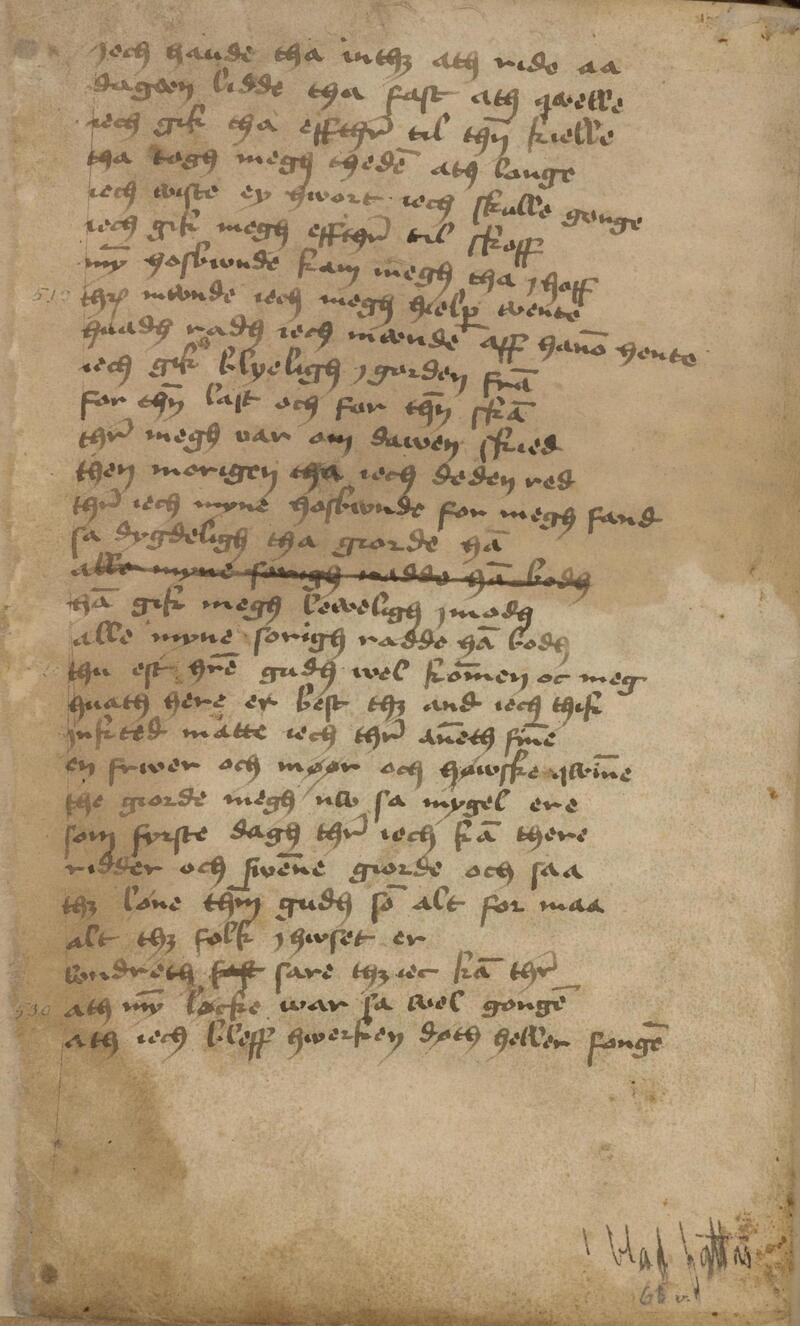 jech haude tha inthz ath ride aa
dagwen lidde tha fast ath qwelle
iech gik tha effther til thn kielle
tha togh megh thedē ath lange
iech wiste ey hwort iech skulle gange
iech gik megh effther til skoff
mȳ hosbwnde kam megh tha j hoff
510 thr mwnde iech megh hielp wente
huadh radh iech mwnde aff hanō hente
iech gik blyeligh j garden frā
for thn last och for thn skā
thr megh var om dawen skied
then morigen tha iech deden red
thr iech myne hosbwnde for megh fand
sa dygdeligh tha giorde hā
alle myne sorigh radde hā bodh
hā gik megh leweligh j modh
alle myne sorigh radde hā bodh
thu est hrē gudh wel komen oc meg
huath here er best thz and iech thik
inkted matte iech thr anneth finē
en frwer och møør och høwske qwinē
the giorde megh nw sa mygel ere
som fyrste dagh thr iech kā there
ridder och swenne giorde och saa
thz løne thm gudh sō alt for maa
alt thz folk j hwset er
wndreth fast sare thz iec kā thr
530 ath mȳ løcke war sa wel gongē
ath iech bleff hwerken døth heller fongē
1 blad
68 v.